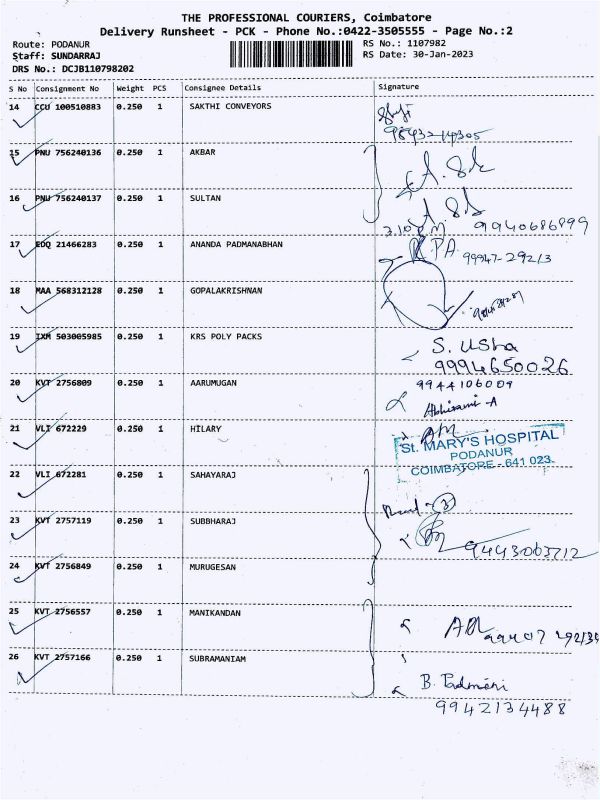 THE PROFESSIONAL COURIERS, Coimbatore
Delivery Runsheet - PCK - Phone No.:0422-3505555 - Page No.:2
Route: PODANUR
RS No.: 1107982
Staff: SUNDARRAJ
RS Date: 30-Jan-2023
DRS No.: DCJB110798202
S No Consignment No Weight PCS Consignee Details Signature
14 CCU 100510883 0.250 1 SAKTHI CONVEYORS
98432-14305
15 PNU 756240136 0.250 1 AKBAR
16 PNU 756240137 0.250 1 SULTAN
9940686899
17 EDQ 21466283 0.250 1 ANANDA PADMANABHAN
99947-29213
18 MAA 568312128 0.250 1 GOPALAKRISHNAN
19 IXM 503005985 0.250 1 KRS POLY PACKS
S. Usha
9994650026
20 KVT 2756809 0.250 1 AARUMUGAN
9944106009
Abhirami-A
21 VLI 672229 0.250 1 HILARY
St. MARY'S HOSPITAL
PODANUR
COIMBATORE - 641 023.
22 VLI 672281 0.250 1 SAHAYARAJ
23 KVT 2757119 0.250 1 SUBBHARAJ
9443003712
24 KVT 2756849 0.250 1 MURUGESAN
25 KVT 2756557 0.250 1 MANIKANDAN
26 KVT 2757166 0.250 1 SUBRAMANIAM
B. Padmini
9942134488